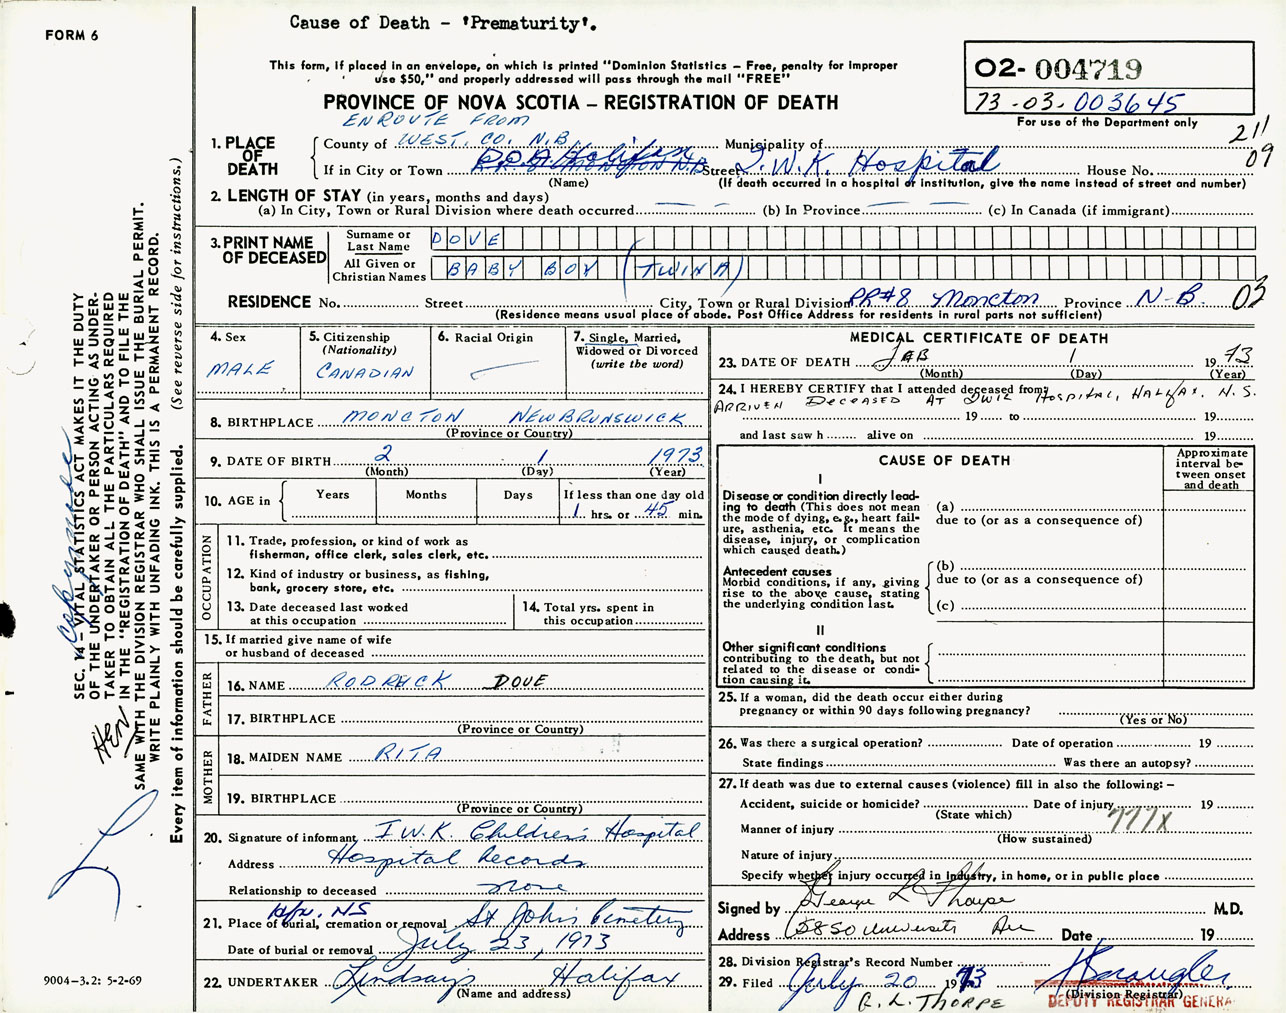 FORM 6
Cause of Death - 'Prematurity'.
This form, if placed in an envelope, on which is printed "Dominion Statistics – Free, penalty for improper
use $50," and properly addressed will pass through the mail "FREE"
O2- 004719
73-03-003645
For use of the Department only
PROVINCE OF NOVA SCOTIA – REGISTRATION OF DEATH
211
09
ENROUTE FROM
1. PLACE OF DEATH
County of WEST. CO. N.B. Municipality of
If in City or Town Street I.W.K. Hospital House No.
(Name) (If death occurred in a hospital or institution, give the name instead of street and number)
2. LENGTH OF STAY (in years, months and days)
(a) In City, Town or Rural Division where death occurred (b) In Province (c) In Canada (if immigrant)
3. PRINT NAME OF DECEASED
Surname or Last Name DOVE
All Given or Christian Names BABY BOY (TWIN A)
RESIDENCE No. Street City, Town or Rural Division RR#8 Moncton Province N-B. 03
(Residence means usual place of abode. Post Office Address for residents in rural parts not sufficient)
4. Sex
MALE
5. Citizenship
(Nationality)
CANADIAN
6. Racial Origin
7. Single, Married,
Widowed or Divorced
(write the word)
8. BIRTHPLACE MONCTON NEW BRUNSWICK
(Province or Country)
9. DATE OF BIRTH 2 1 1973
(Month) (Day) (Year)
10. AGE in Years Months Days If less than one day old
1 hrs. or 45 min.
OCCUPATION
11. Trade, profession, or kind of work as
fisherman, office clerk, sales clerk, etc.
12. Kind of industry or business, as fishing,
bank, grocery store, etc.
13. Date deceased last worked
at this occupation
14. Total yrs. spent in
this occupation
15. If married give name of wife
or husband of deceased
FATHER
16. NAME RODRICK DOVE
17. BIRTHPLACE
(Province or Country)
MOTHER
18. MAIDEN NAME RITA
19. BIRTHPLACE
(Province or Country)
20. Signature of informant I.W.K. Children's Hospital
Address Hospital Records
Relationship to deceased none
Hfx. NS
21. Place of burial, cremation or removal St John's Cemetery
Date of burial or removal July 23, 1973
22. UNDERTAKER Lindsay's Halifax
(Name and address)
MEDICAL CERTIFICATE OF DEATH
23. DATE OF DEATH FEB 1 1973
(Month) (Day) (Year)
24. I HEREBY CERTIFY that I attended deceased from
ARRIVED DECEASED AT IWK HOSPITAL, HALIFAX, N.S.
19 to 19
and last saw h alive on 19
CAUSE OF DEATH
Approximate
interval be-
tween onset
and death
I
Disease or condition directly lead-
ing to death (This does not mean
the mode of dying, e.g., heart fail-
ure, asthenia, etc. It means the
disease, injury, or complication
which caused death.)
(a)
due to (or as a consequence of)
Antecedent causes
Morbid conditions, if any, giving
rise to the above cause, stating
the underlying condition last.
(b)
due to (or as a consequence of)
(c)
II
Other significant conditions
contributing to the death, but not
related to the disease or condi-
tion causing it.
25. If a woman, did the death occur either during
pregnancy or within 90 days following pregnancy?
(Yes or No)
26. Was there a surgical operation? Date of operation 19
State findings Was there an autopsy?
27. If death was due to external causes (violence) fill in also the following: –
Accident, suicide or homicide? Date of injury 19
(State which)
777X
Manner of injury
(How sustained)
Nature of injury
Specify whether injury occurred in industry, in home, or in public place
Signed by George L Thorpe M.D.
Address 5850 University Ave Date 19
28. Division Registrar's Record Number
29. Filed July 20 1973
(Division Registrar)
DEPUTY REGISTRAR GENERA
R. L. THORPE
SEC. 14 – VITAL STATISTICS ACT MAKES IT THE DUTY
OF THE UNDERTAKER OR PERSON ACTING AS UNDER-
TAKER TO OBTAIN ALL THE PARTICULARS REQUIRED
IN THE "REGISTRATION OF DEATH" AND TO FILE THE
SAME WITH THE DIVISION REGISTRAR WHO SHALL ISSUE THE BURIAL PERMIT.
WRITE PLAINLY WITH UNFADING INK. THIS IS A PERMANENT RECORD.
Every item of information should be carefully supplied. (See reverse side for instructions.)
9004-3.2: 5-2-69